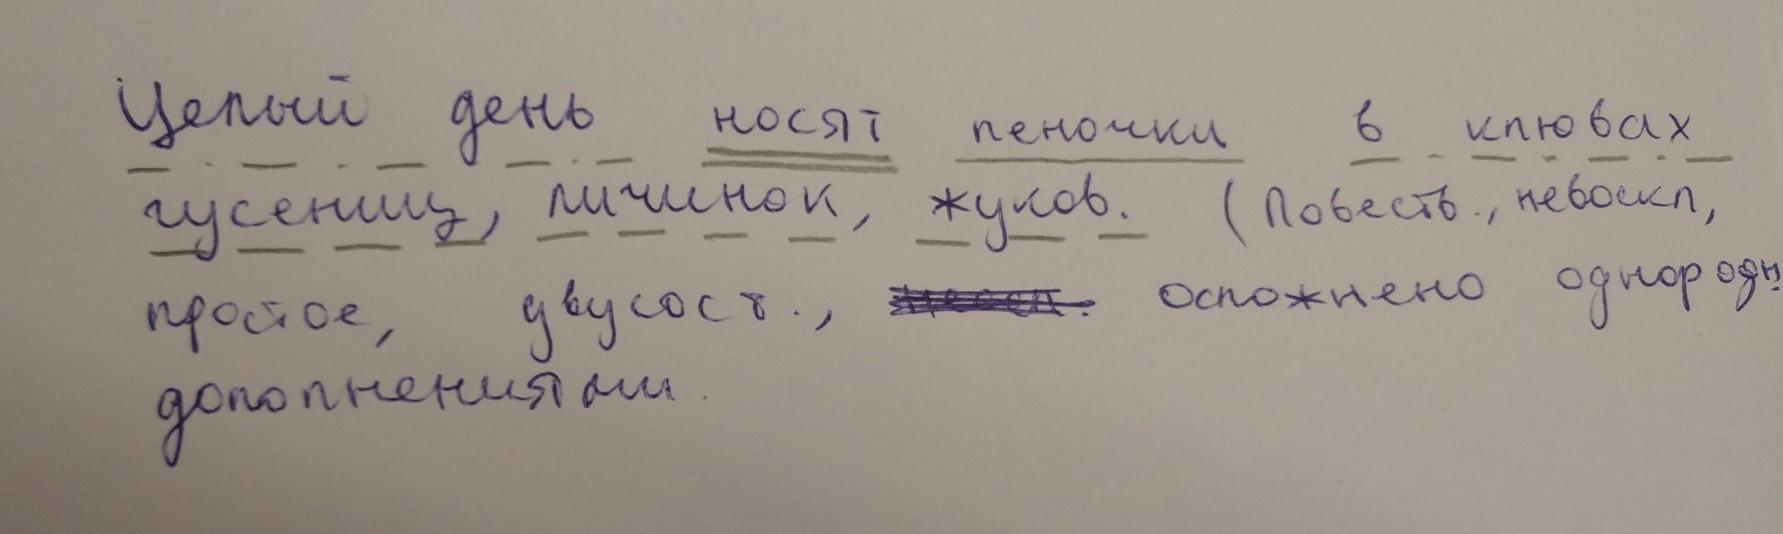 Целый день носят пеночки в клювах
гусениц, личинок, жуков. (Повеств., невоскл,
простое, двусост., осложнено однородн.
дополнениями.